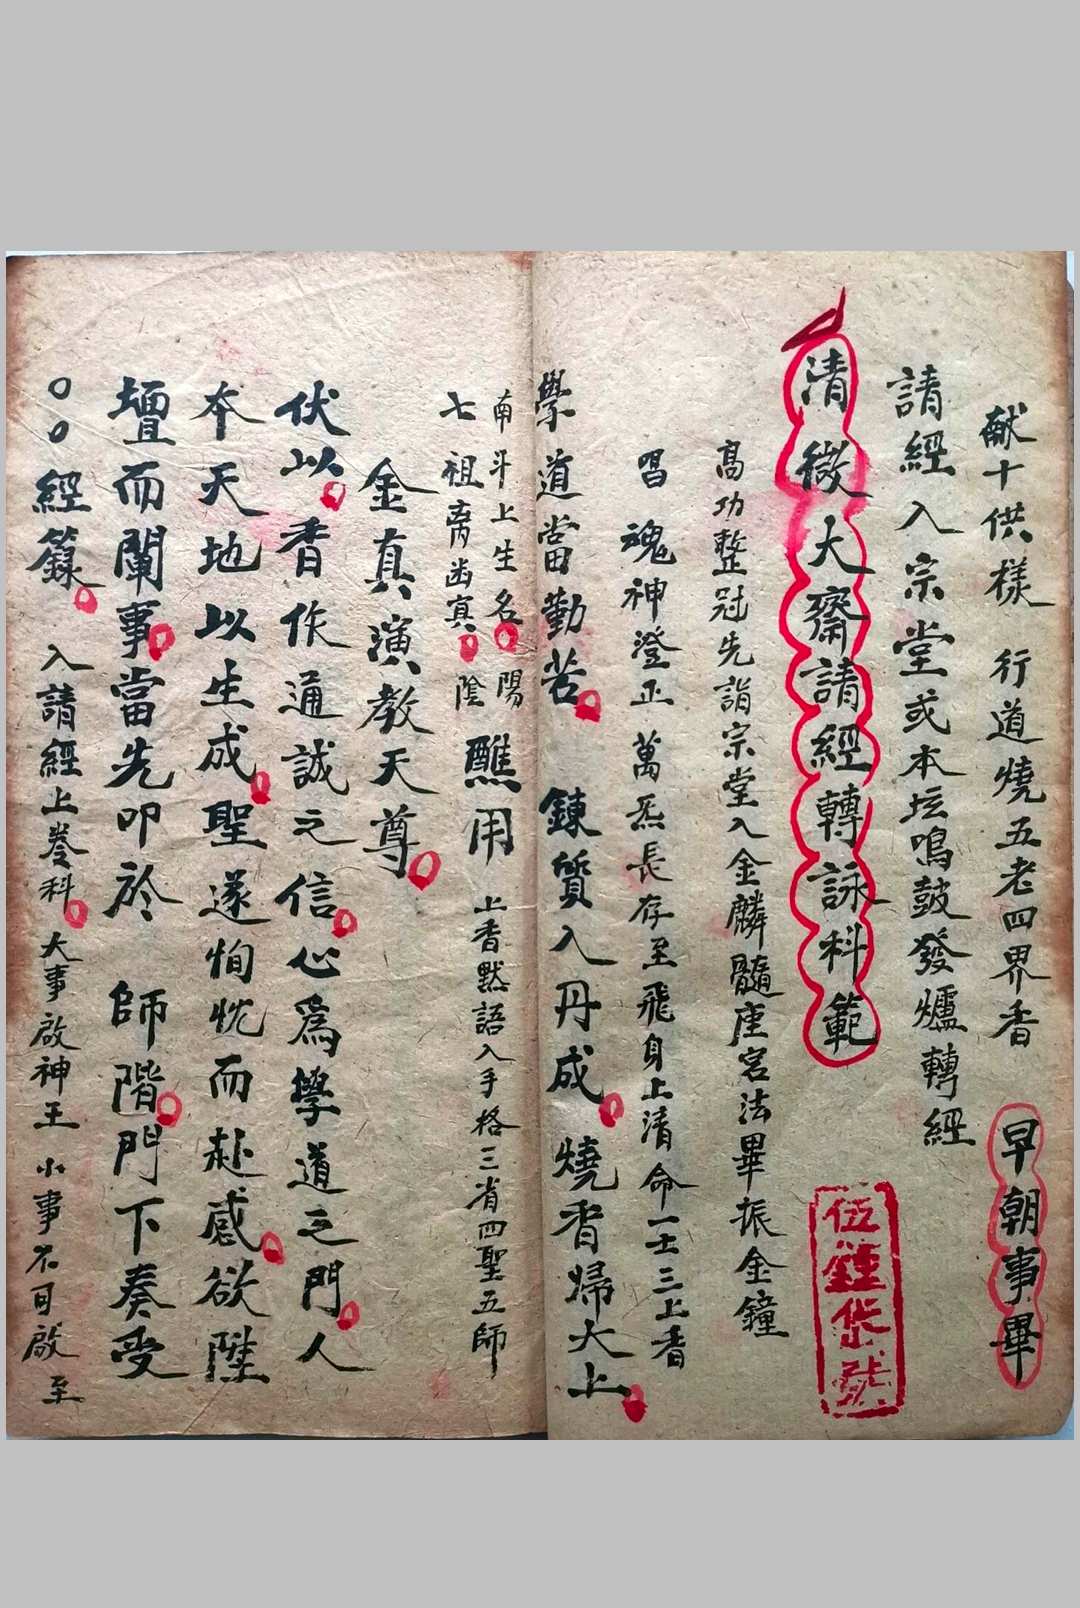 献十供樣 行道燒五老四界香 早朝事畢
請經入宗堂或本坛鳴鼓發爐轉經
清微大齋請經轉詠科範
高功整冠先詣宗堂入金麟髓座宮法畢振金鐘
唱 魂神澄正 萬炁長存至飛身上清命一士三上香
學道當勤苦 鍊質入丹成 燒香歸大上
南斗上生名 陽
七祖离幽冥 陰
醮用 上香默語入手格三省四聖五師
金真演教天尊
伏以香作通誠之信心爲學道之門人
本天地以生成聖遂恂忱而赴感欲陞
壇而闡事當先叩於 師階門下奏受
〇〇經籙 入請經上卷科 大事啟神王 小事不用啟 至